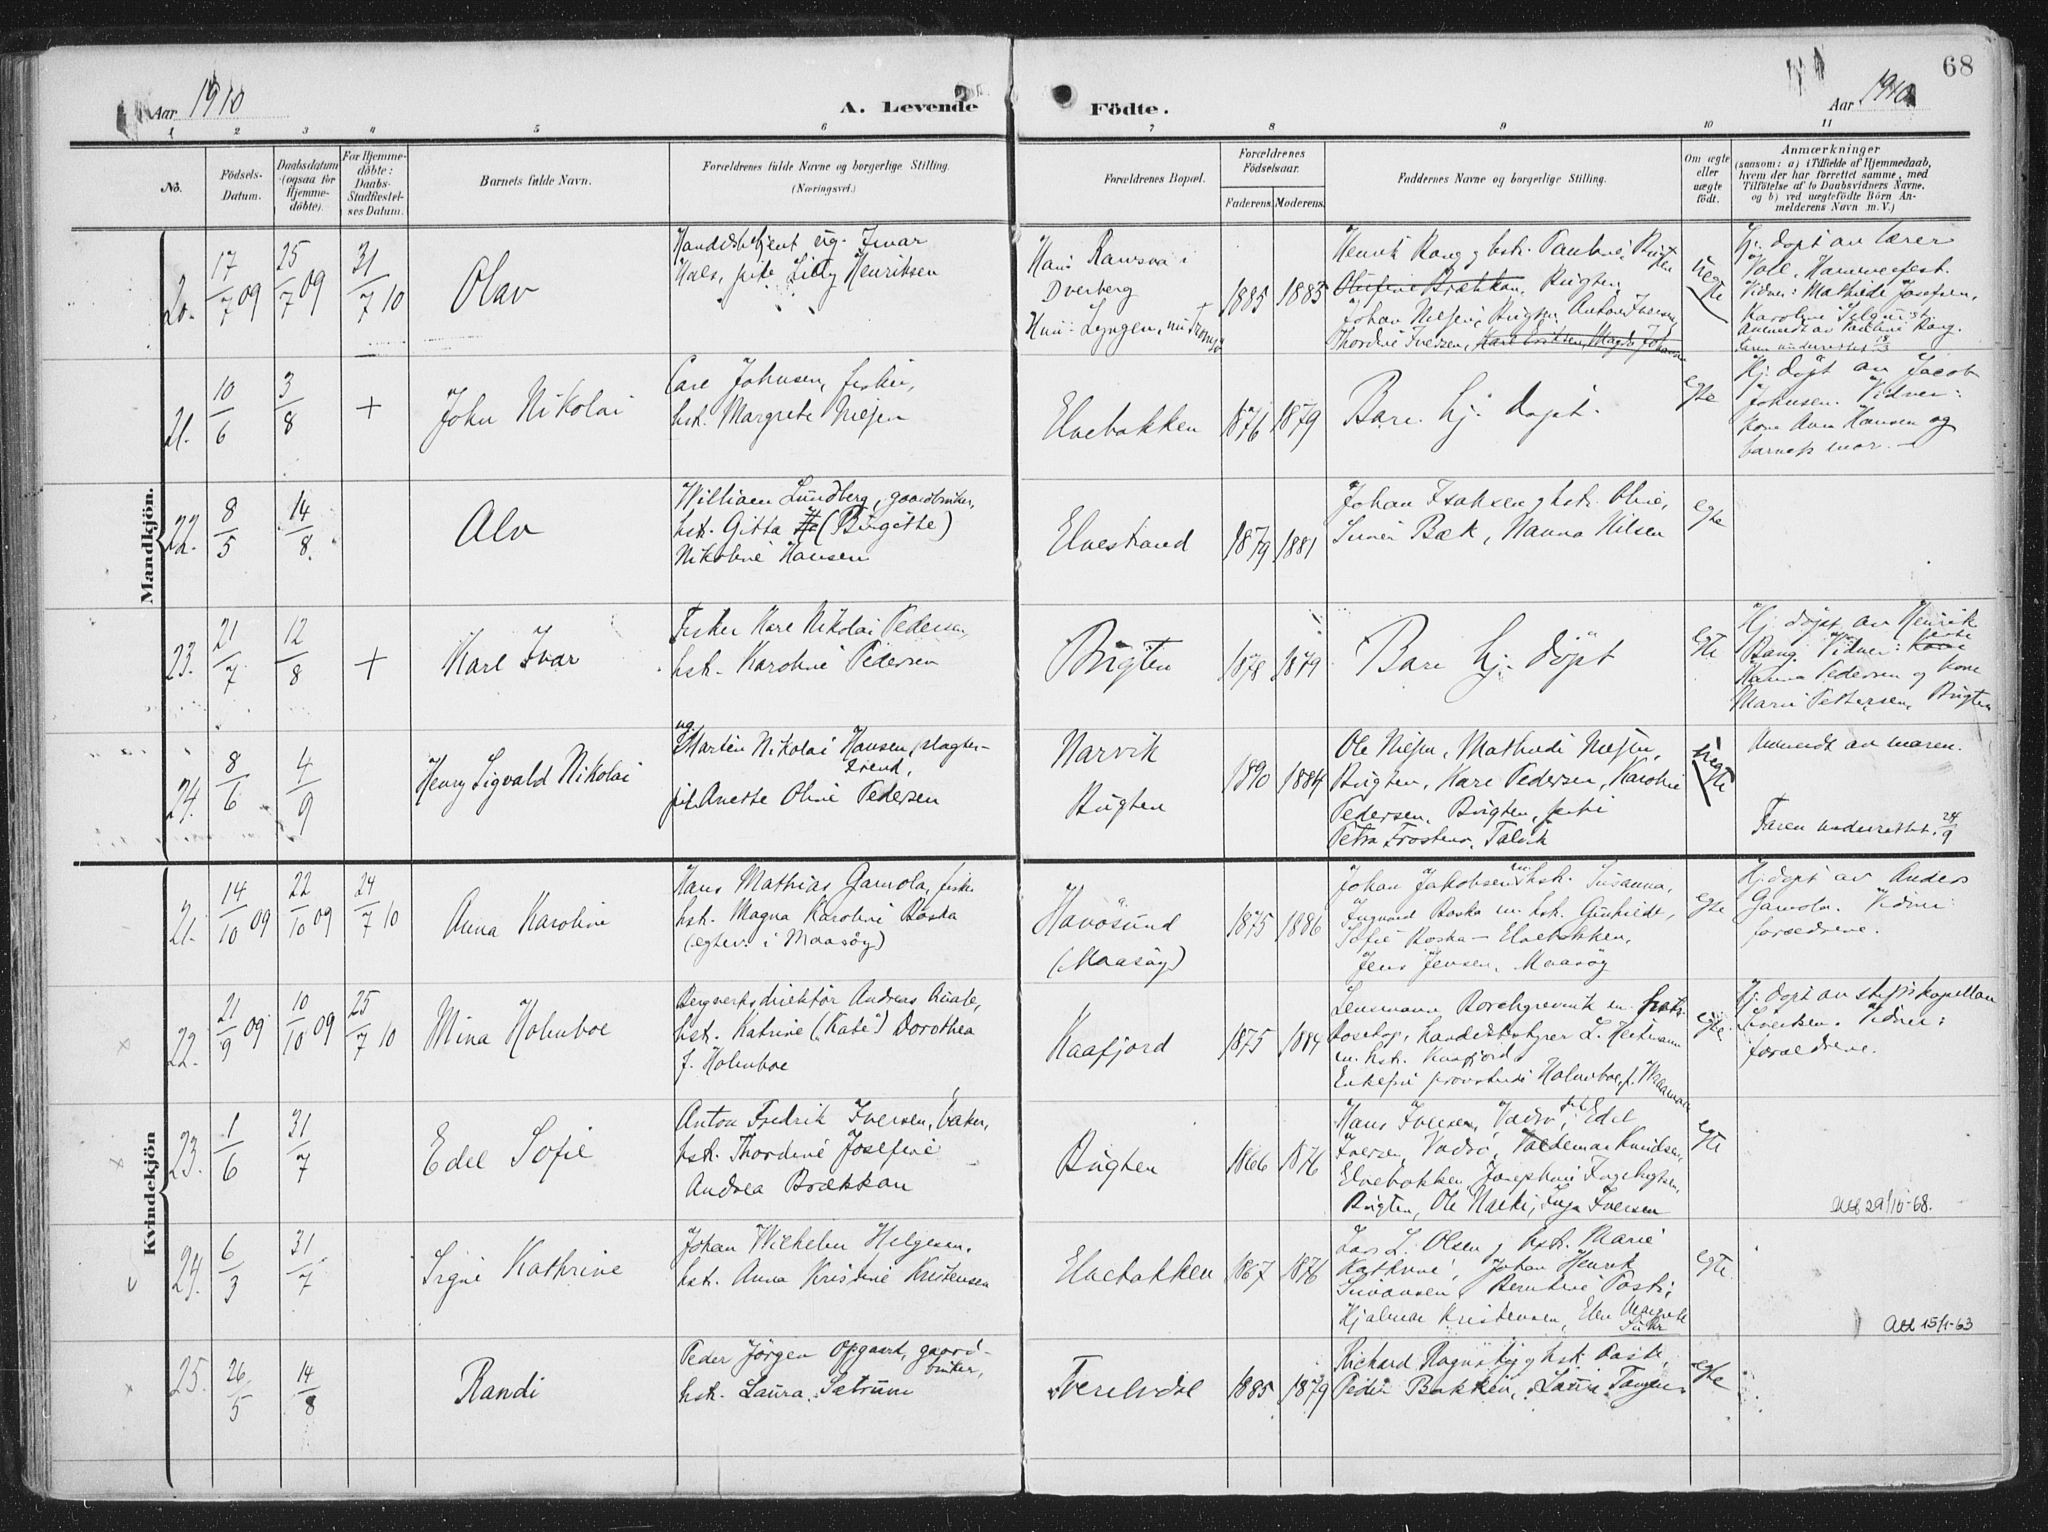 68
Aar 1910
A. Levende
Födte.
Aar 1910
1 2 3 4 5 6 7 8 9 10 11
No.
Födsels-
Datum.
Daabsdatum
(ogsaa for
Hjemme-
döbte).
For Hjemme-
döbte:
Daabs-
Stadfæstel-
ses Datum.
Barnets fulde Navn.
Forældrenes fulde Navne og borgerlige Stilling.
(Næringsvei.)
Forældrenes Bopæl.
Forældrenes
Födselsaar.
Faderens. Moderens.
Faddernes Navne og borgerlige Stilling.
Om ægte
eller
uægte
födt.
Anmærkninger
(saasom: a) i Tilfælde af Hjemmedaab,
hvem der har forrettet samme, med
Tilföielse af to Daabsvidners Navne,
og b) ved uægtefödte Börn An-
melderens Navn m. V.)
Mandkjön.
20.
17/7 09
25/7 09
31/7 10
Olav
Handelsbetjent ug. Ivar
Hals, pike Lilly Henriksen
Hans Ramsva i
Dverberg
Hun: Lyngen, nu Tromsö
1885 1883
Henrik Bang og hst. Pauline, Bugten
Olufine Brækkan, Bugten,
Johan Nilsen, Bugten, Anton Iversen,
Thordine Iversen, Karl Eriksen, Magda Johansen
uegte
Hj. döpt av lærer
Vole, Hammerfest.
Vidner: Mathilde Josefsen,
Karoline
Anmeldt av Pauline Bang.
Faren underrettet 18/3
21.
10/6
3/8
+
John Nikolai
Carl Johnsen, fisker,
hst. Margrete Nilsen
Elvebakken
1876 1879
Bare hj. döpt.
egte
Hj. döpt av Jacob
Johnsen. Vidner:
kone Anna Hansen og
barnets mor.
22.
8/5
14/8
Alv
William Lundberg, gaardbruker,
hst. Gitta (Birgitte)
Nikoline Hansen
Elvestrand
1879 1881
Johan Isaksen og hst. Oline,
Bæk, Nanna Nilsen
egte
23.
21/7
12/8
+
Karl Ivar
Fisker Karl Nikolai Pedersen,
hst. Karoline Pedersen
Bugten
1878 1879
Bare hj. döpt
egte
Hj. döpt av Henrik
Bang. Vidner:
Hanna Pedersen og kone
Marie Pettersen, Bugten
24.
8/6
4/9
Henry Sigvald Nikolai
ug. Martin Nikolai Hansen, slagter-
svend,
pi. Anette Oline Pedersen
Narvik
Bugten
1890 1884
Ole Nilsen, Mathilde Nilsen,
Bugten, Karl Pedersen, Karoline
Pedersen, Bugten, pike
Petra Frostens, Talvik
uegte
Anmeldt av moren.
Faren underrettet 24/9
Kvindekjön
21.
14/10 09
22/10 09
24/7 10
Anna Karoline
Hans Mathias Gamola, fisker
hst. Magna Karoline Boska
(egtev. i Maasöy)
Havösund
(Maasöy)
1875 1886
Johan Jakobsen m. hst. Susanna,
Ingvard Boska m. hst. Gunhilde,
Sofie Boska – Elvebakken,
Jens Jensen, Maasöy
egte
Hj. döpt av Anders
Gamola. Vidner:
forældrene.
22.
21/9 09
10/10 09
25/7 10
Mina Holmboe
Bergverksdirektör Andreas Quale,
hst. Katrine ("Kate") Dorothea
f. Holmboe
Kaafjord
1875 1884
Lensmann Borchgrevink m. frue
Bosekop, Handelsbestyrer L. Heitmann
m. hst. Kaafjord
Enkefru provstinde Holmboe, f. Waarmann
egte
Hj. döpt av stiftskapellan
Sivertsen. Vidner:
forældrene.
23.
1/6
31/7
Edel Sofie
Anton Fredrik Iversen, baker,
hst. Thordine Josefine
Andrea Brækkan
Bugten
1866 1876
Hans Iversen, Vadsö, frk. Edel
Iversen, Vadsö, Valdemar Knudsen,
Elvebakken, Josephine Ingebrigtsen,
Bugten, Ole Nacki, Inga Iversen
egte
Att 29/10-68.
24.
6/3
31/7
Signe Kathrine
Johan Wilhelm Helgesen,
hst. Anna Kristine Kristensen
Elvebakken
1867 1876
Lars L. Olsen og hst. Marie
Kathrine, Johan Henrik
Simonsen, Bernhine Posti,
Hjalmar Kristensen, Elen Margrete
Suhr
egte.
Att 15/1-63
25.
26/5
14/8
Randi
Peder Jörgen Opgaard, gaard-
bruker,
hst. Laura Sætrum
Tverelvdal
1885 1879
Richard Rognskog og hst.
Peder Bakken, Laura Tangen
egte